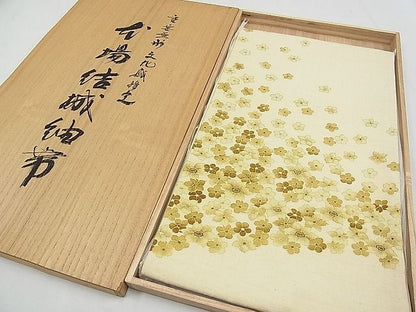 重要無形文化財指定
本場結城紬帯